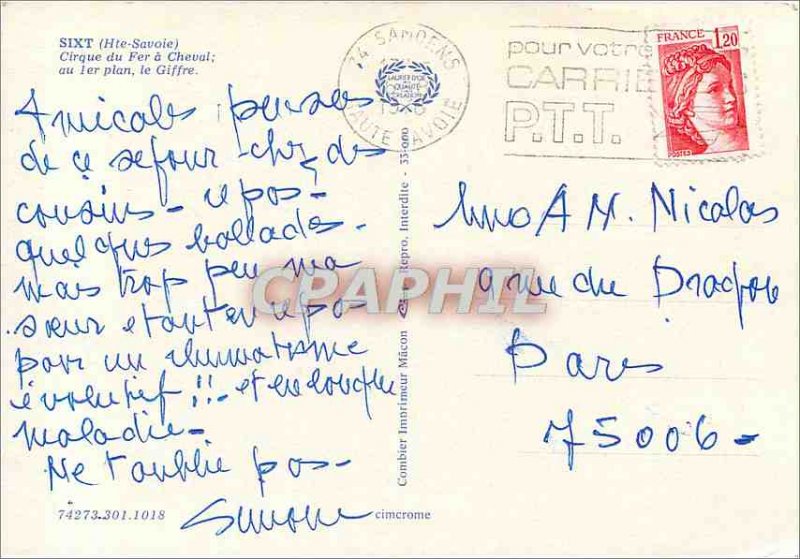 SIXT (Hte-Savoie)
Cirque du Fer à Cheval;
au 1er plan, le Giffre.
Amicales pensées
de ce séjour chez des
cousins - repos -
quelques ballades.
mais trop peu ma
sœur étant en repos
pour un rhumatisme
évolutif !!! - et en longue
maladie -
Ne t'oublie pas -
Simone
74273.301.1018
cimcrome
Combier Imprimeur Mâcon
Repro. Interdite - 33.000
74 SAMOENS
HAUTE SAVOIE
LAURÉAT D'OR
QUALITÉ
pour votre
CARRIE
P.T.T.
FRANCE 1,20
POSTES
Mme A M. Nicolas
9 rue du Dragon
Paris
75006 -
CPAPHIL